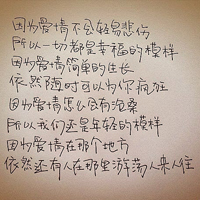 因为爱情不会轻易悲伤
所以一切都是幸福的模样
因为爱情简单的生长
依然随时可以为你疯狂
因为爱情怎么会有沧桑
所以我们还是年轻的模样
因为爱情在那个地方
依然还有人在那里游荡人来人往